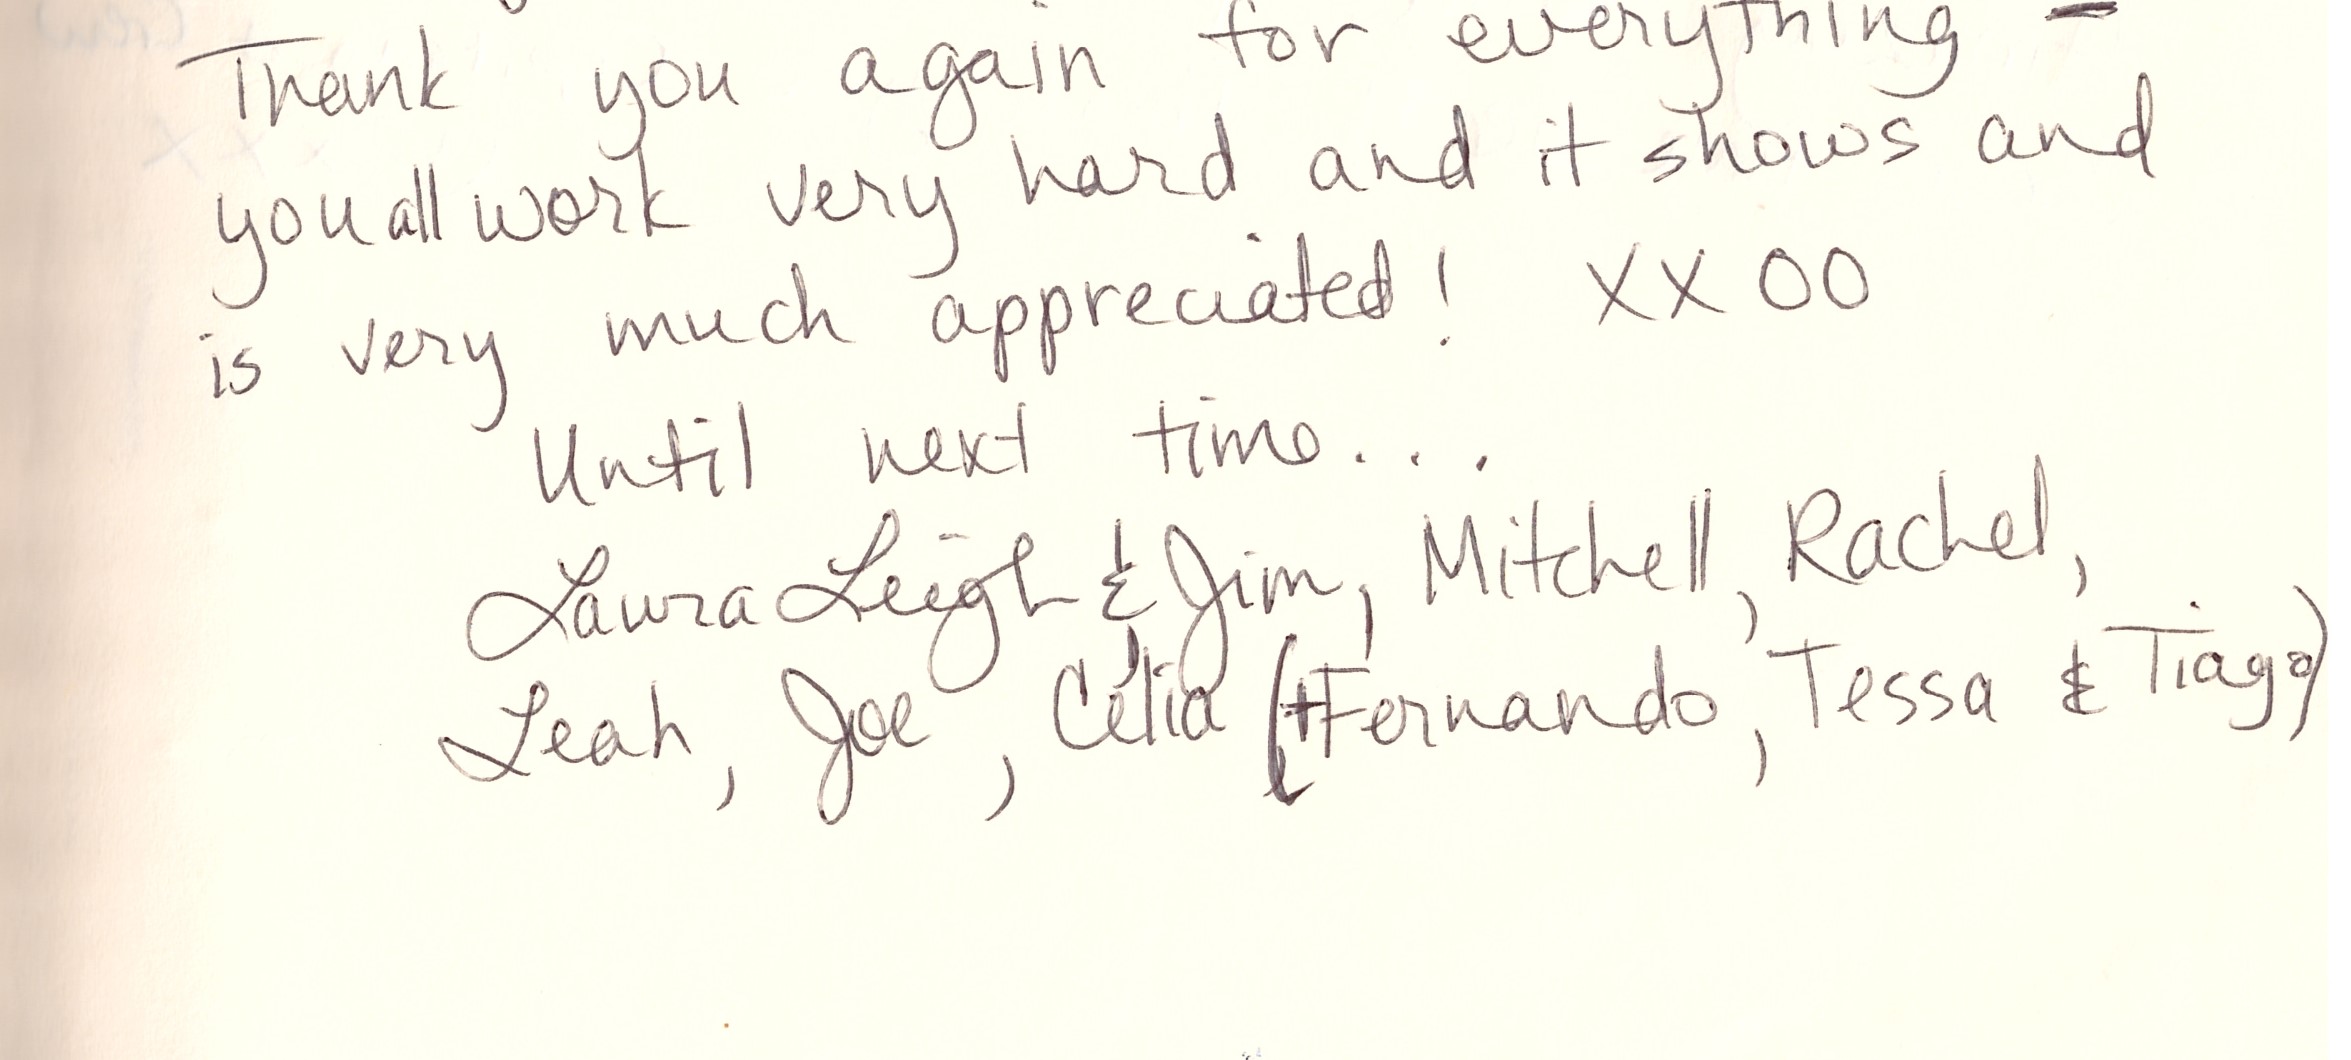 Thank you again for everything -
you all work very hard and it shows and
is very much appreciated! XXOO
Until next time...
Laura Leigh & Jim, Mitchell, Rachel,
Leah, Joe, Célia (+Fernando, Tessa & Tiago)